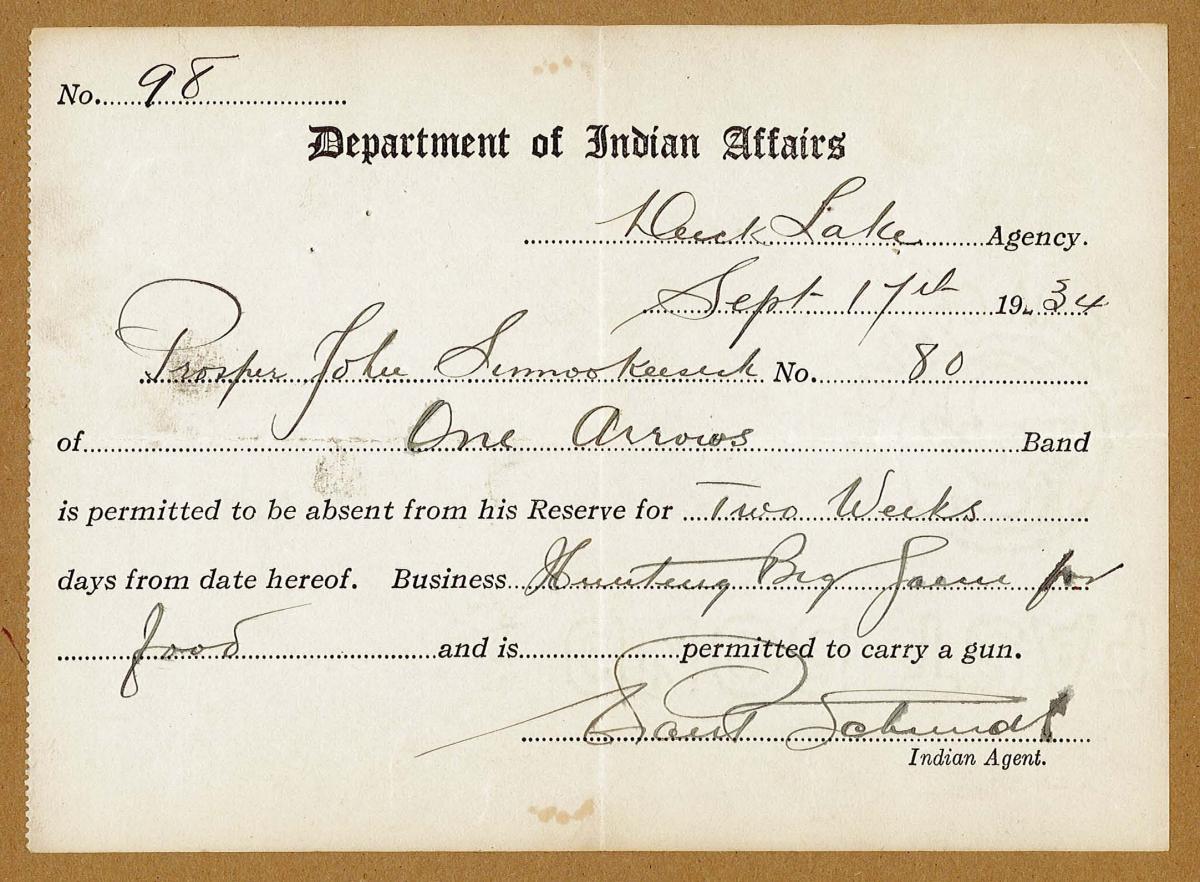 No. 98
Department of Indian Affairs
Duck Lake Agency.
Sept 17th 1934
Prosper John No. 80
of One Arrows Band
is permitted to be absent from his Reserve for Two Weeks
days from date hereof. Business Hunting Big Game for
food and is permitted to carry a gun.
Schmidt
Indian Agent.